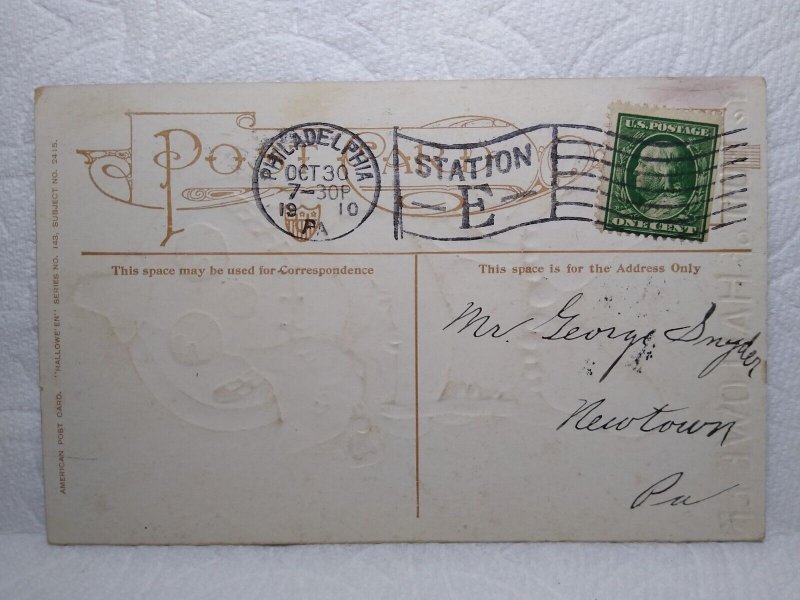 POST CARD
PHILADELPHIA
OCT 30
7-30P
19 10
PA
STATION
E
U.S. POSTAGE
ONE CENT
This space may be used for Correspondence
This space is for the Address Only
Mr. George Snyder
Newtown
Pa
AMERICAN POST CARD. "HALLOWE'EN" SERIES NO. 143, SUBJECT NO. 2415.